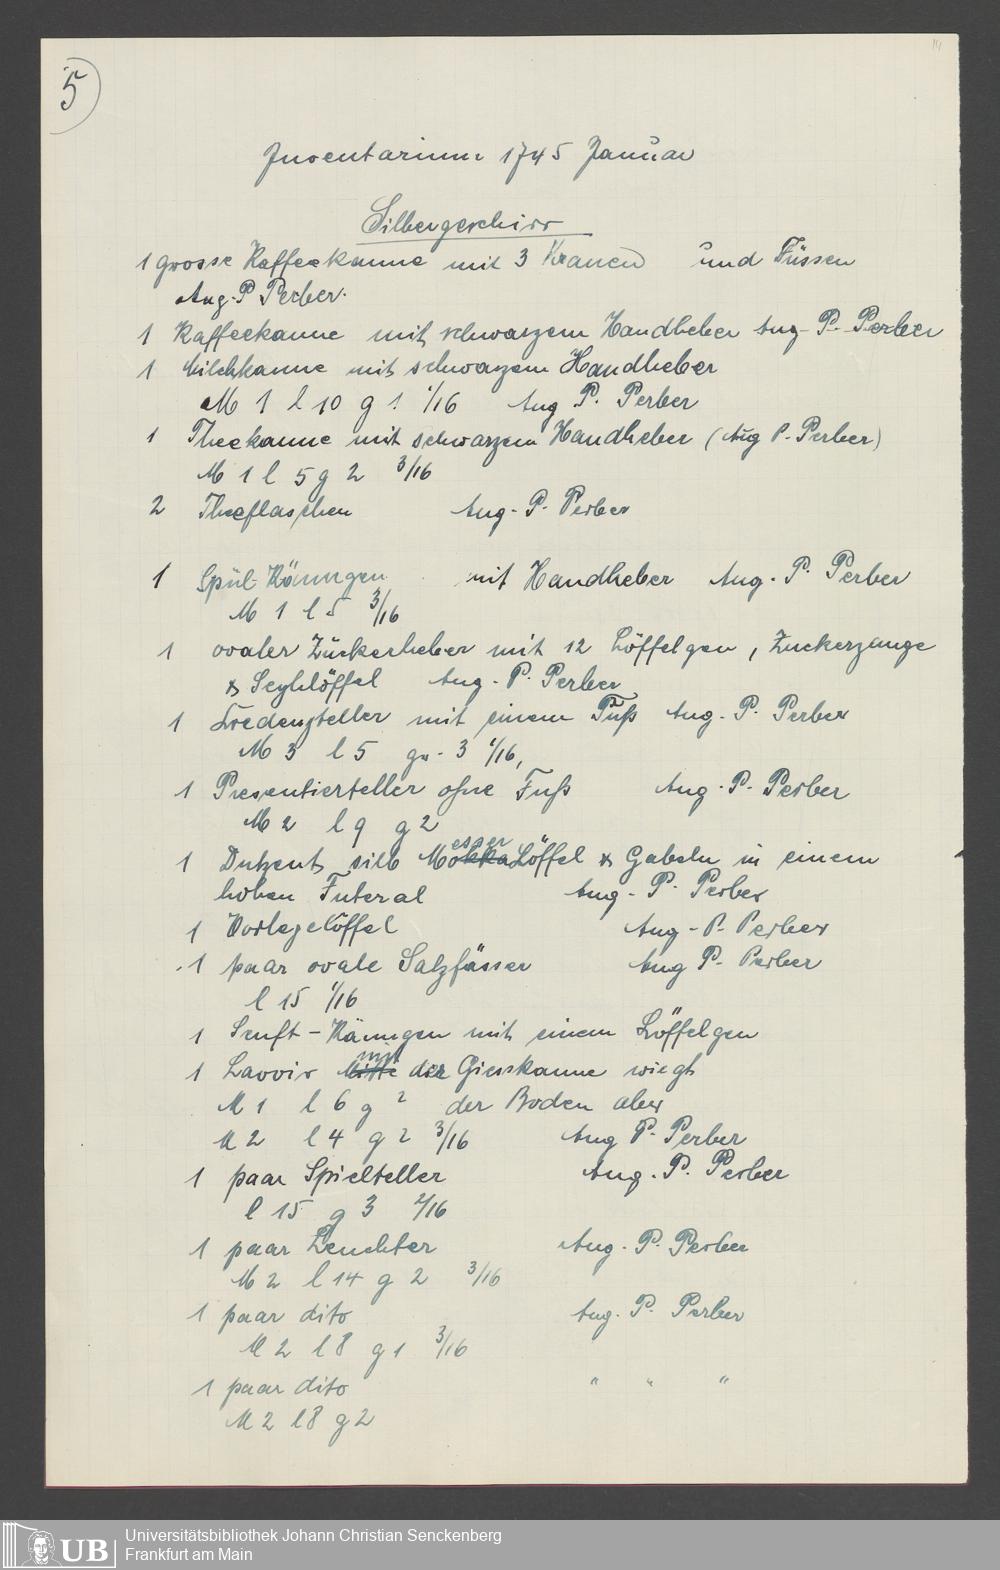 5)
14
Inventarium 1745 Januar
Silbergeschirr
1 grosse Kaffeekanne mit 3 Kranen und Füssen
Aug. P Perber.
1 Kaffeekanne mit schwarzem Handheber Aug. P. Perber
1 Milchkanne mit schwarzem Handheber
M 1 l 10 g 1 1/16 Aug P. Perber
1 Theekanne mit schwarzem Handheber (Aug P. Perber)
M 1 l 5 g 2 3/16
2 Theeflaschen Aug. P. Perber
1 Spül-Känngen mit Handheber Aug. P. Perber
M 1 l 5 3/16
1 ovaler Zuckerheber mit 12 Löffelgen, Zuckerzange
& Seyhlöffel Aug. P. Perber
1 Credenzteller mit einem Fuß Aug. P. Perber
M 3 l 5 qu. 3 1/16,
1 Presentierteller ohne Fuß Aug. P. Perber
M 2 l 9 g 2
esser
1 Dutzent silb Mokka Löffel & Gabeln in einem
hohen Futeral Aug. P. Perber
1 Vorlegelöffel Aug. P. Perber
1 paar ovale Salzfässer Aug P. Perber
l 15 1/16
1 Senft-Känngen mit einem Löffelgen
mit
1 Lavoir der Giesskanne wiegt
M 1 l 6 g 2 der Boden aber
M 2 l 4 g 2 3/16 Aug P. Perber
1 paar Spielteller Aug. P. Perber
l 15 g 3 2/16
1 paar Leuchter Aug. P. Perber
M 2 l 14 g 2 3/16
1 paar dito Aug. P. Perber
M 2 l 8 g 1 3/16
1 paar dito " " "
M 2 l 8 g 2
UB Universitätsbibliothek Johann Christian Senckenberg
Frankfurt am Main